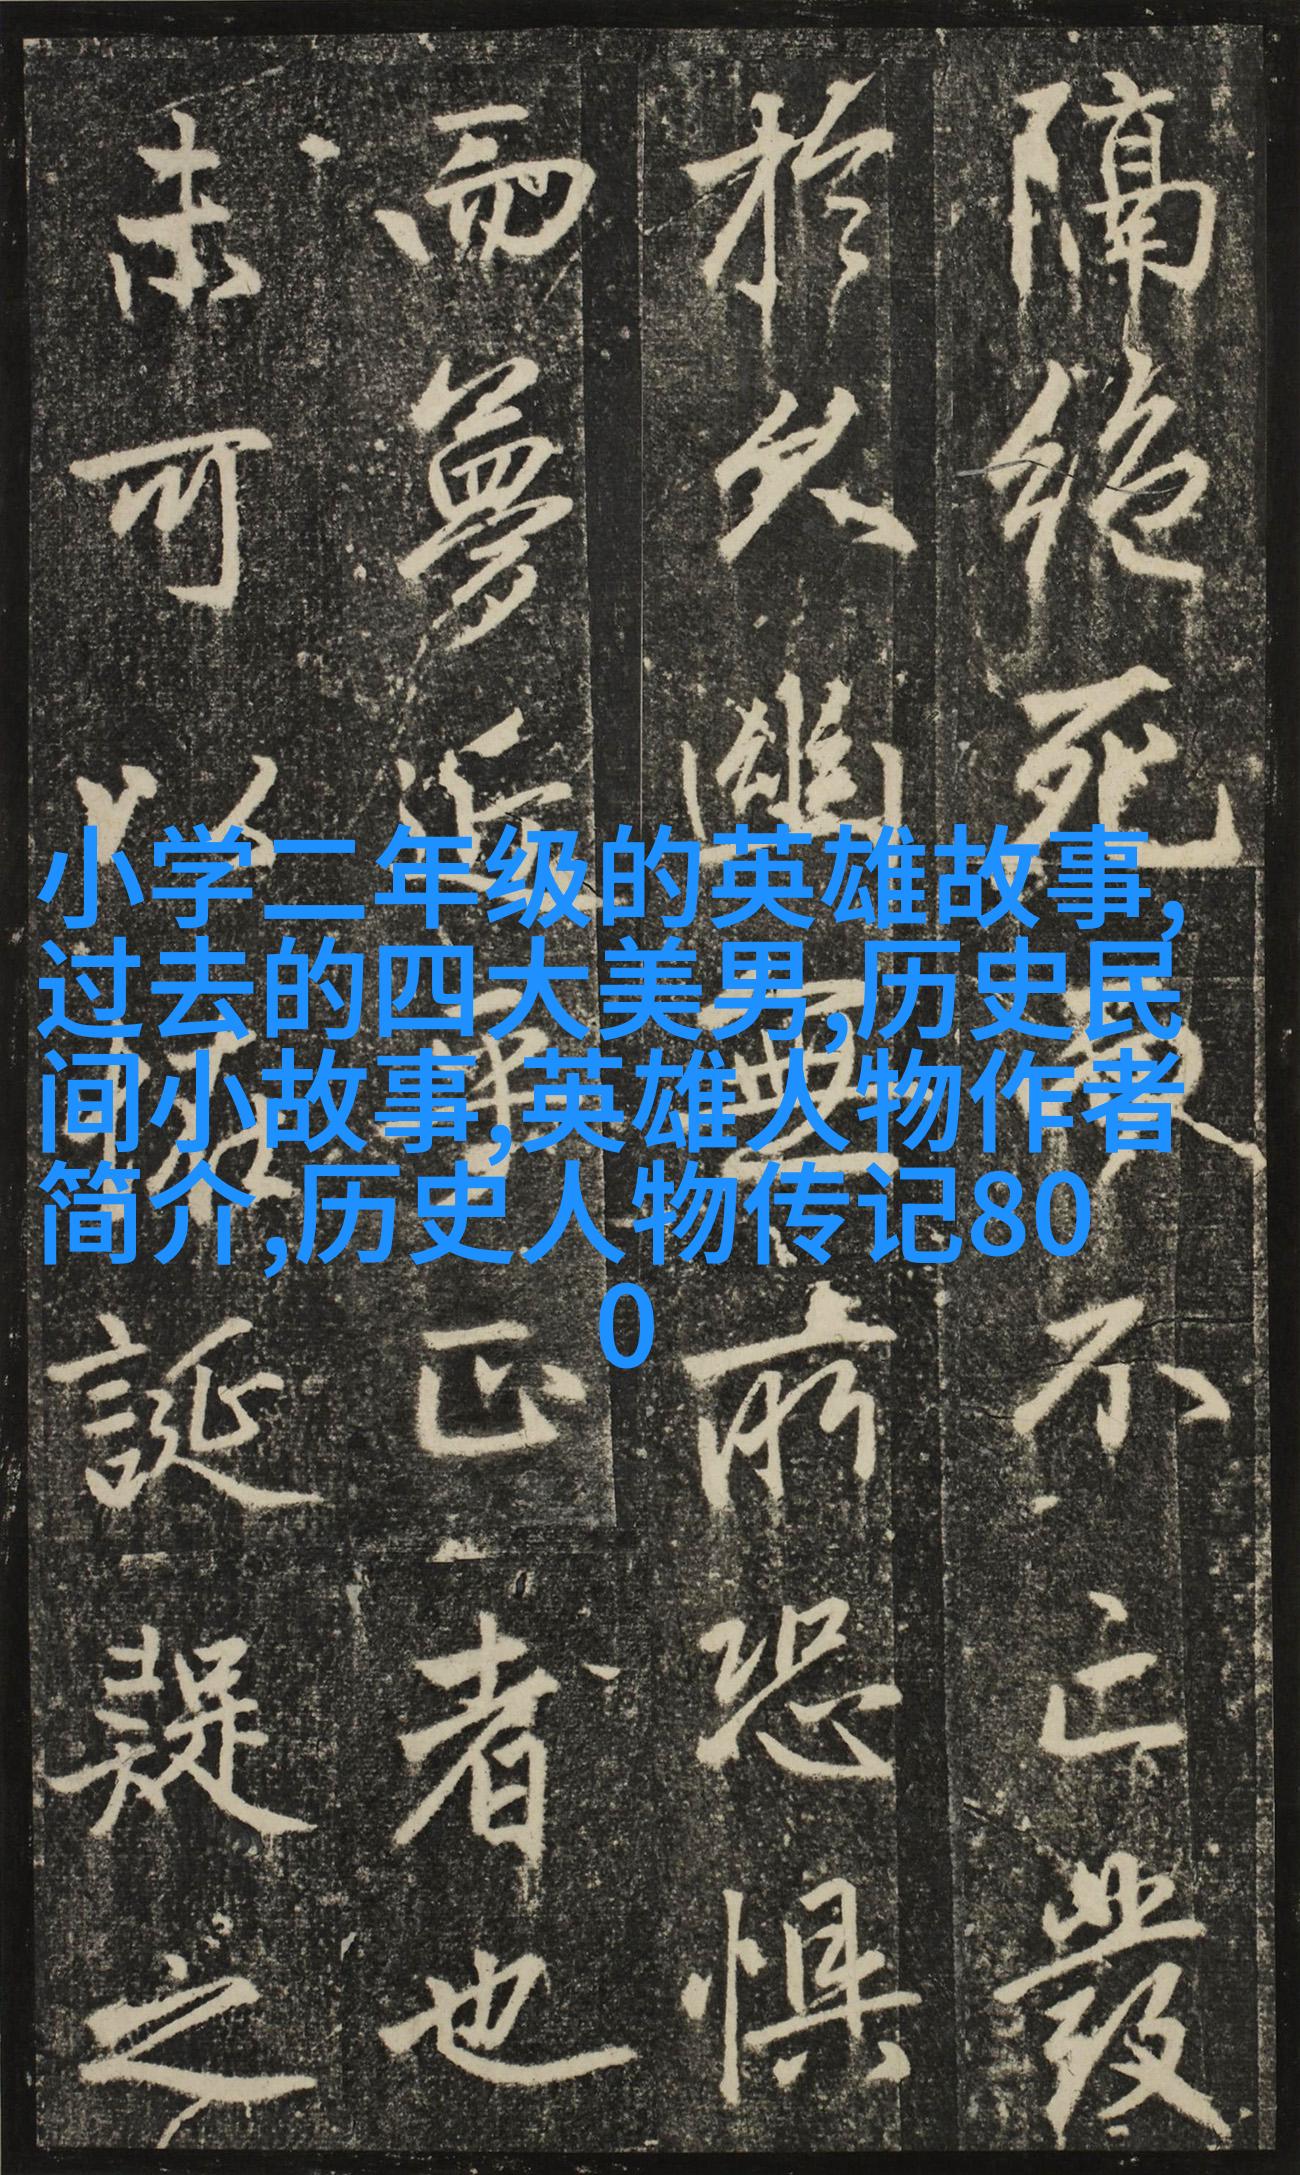 小学二年级的英雄故事,
过去的四大美男,历史民
间小故事,英雄人物作者
简介,历史人物传记80
0
隔絶死不亡發
於久幽所恐惧
而夢近乎正者也
未可以誕疑之